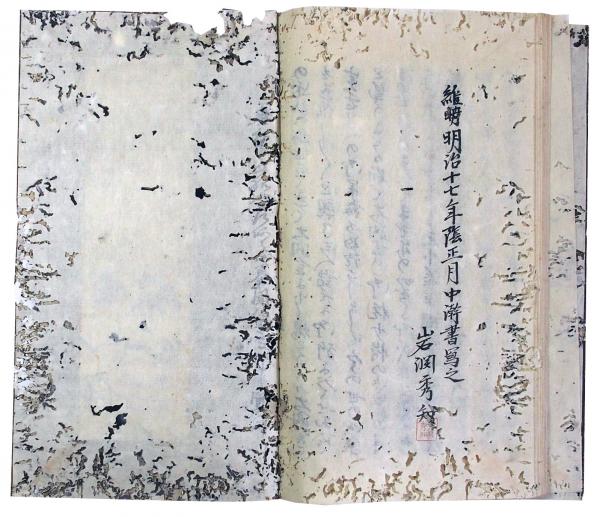 維時明治十七年陰正月中澣書寫之
岩渕秀